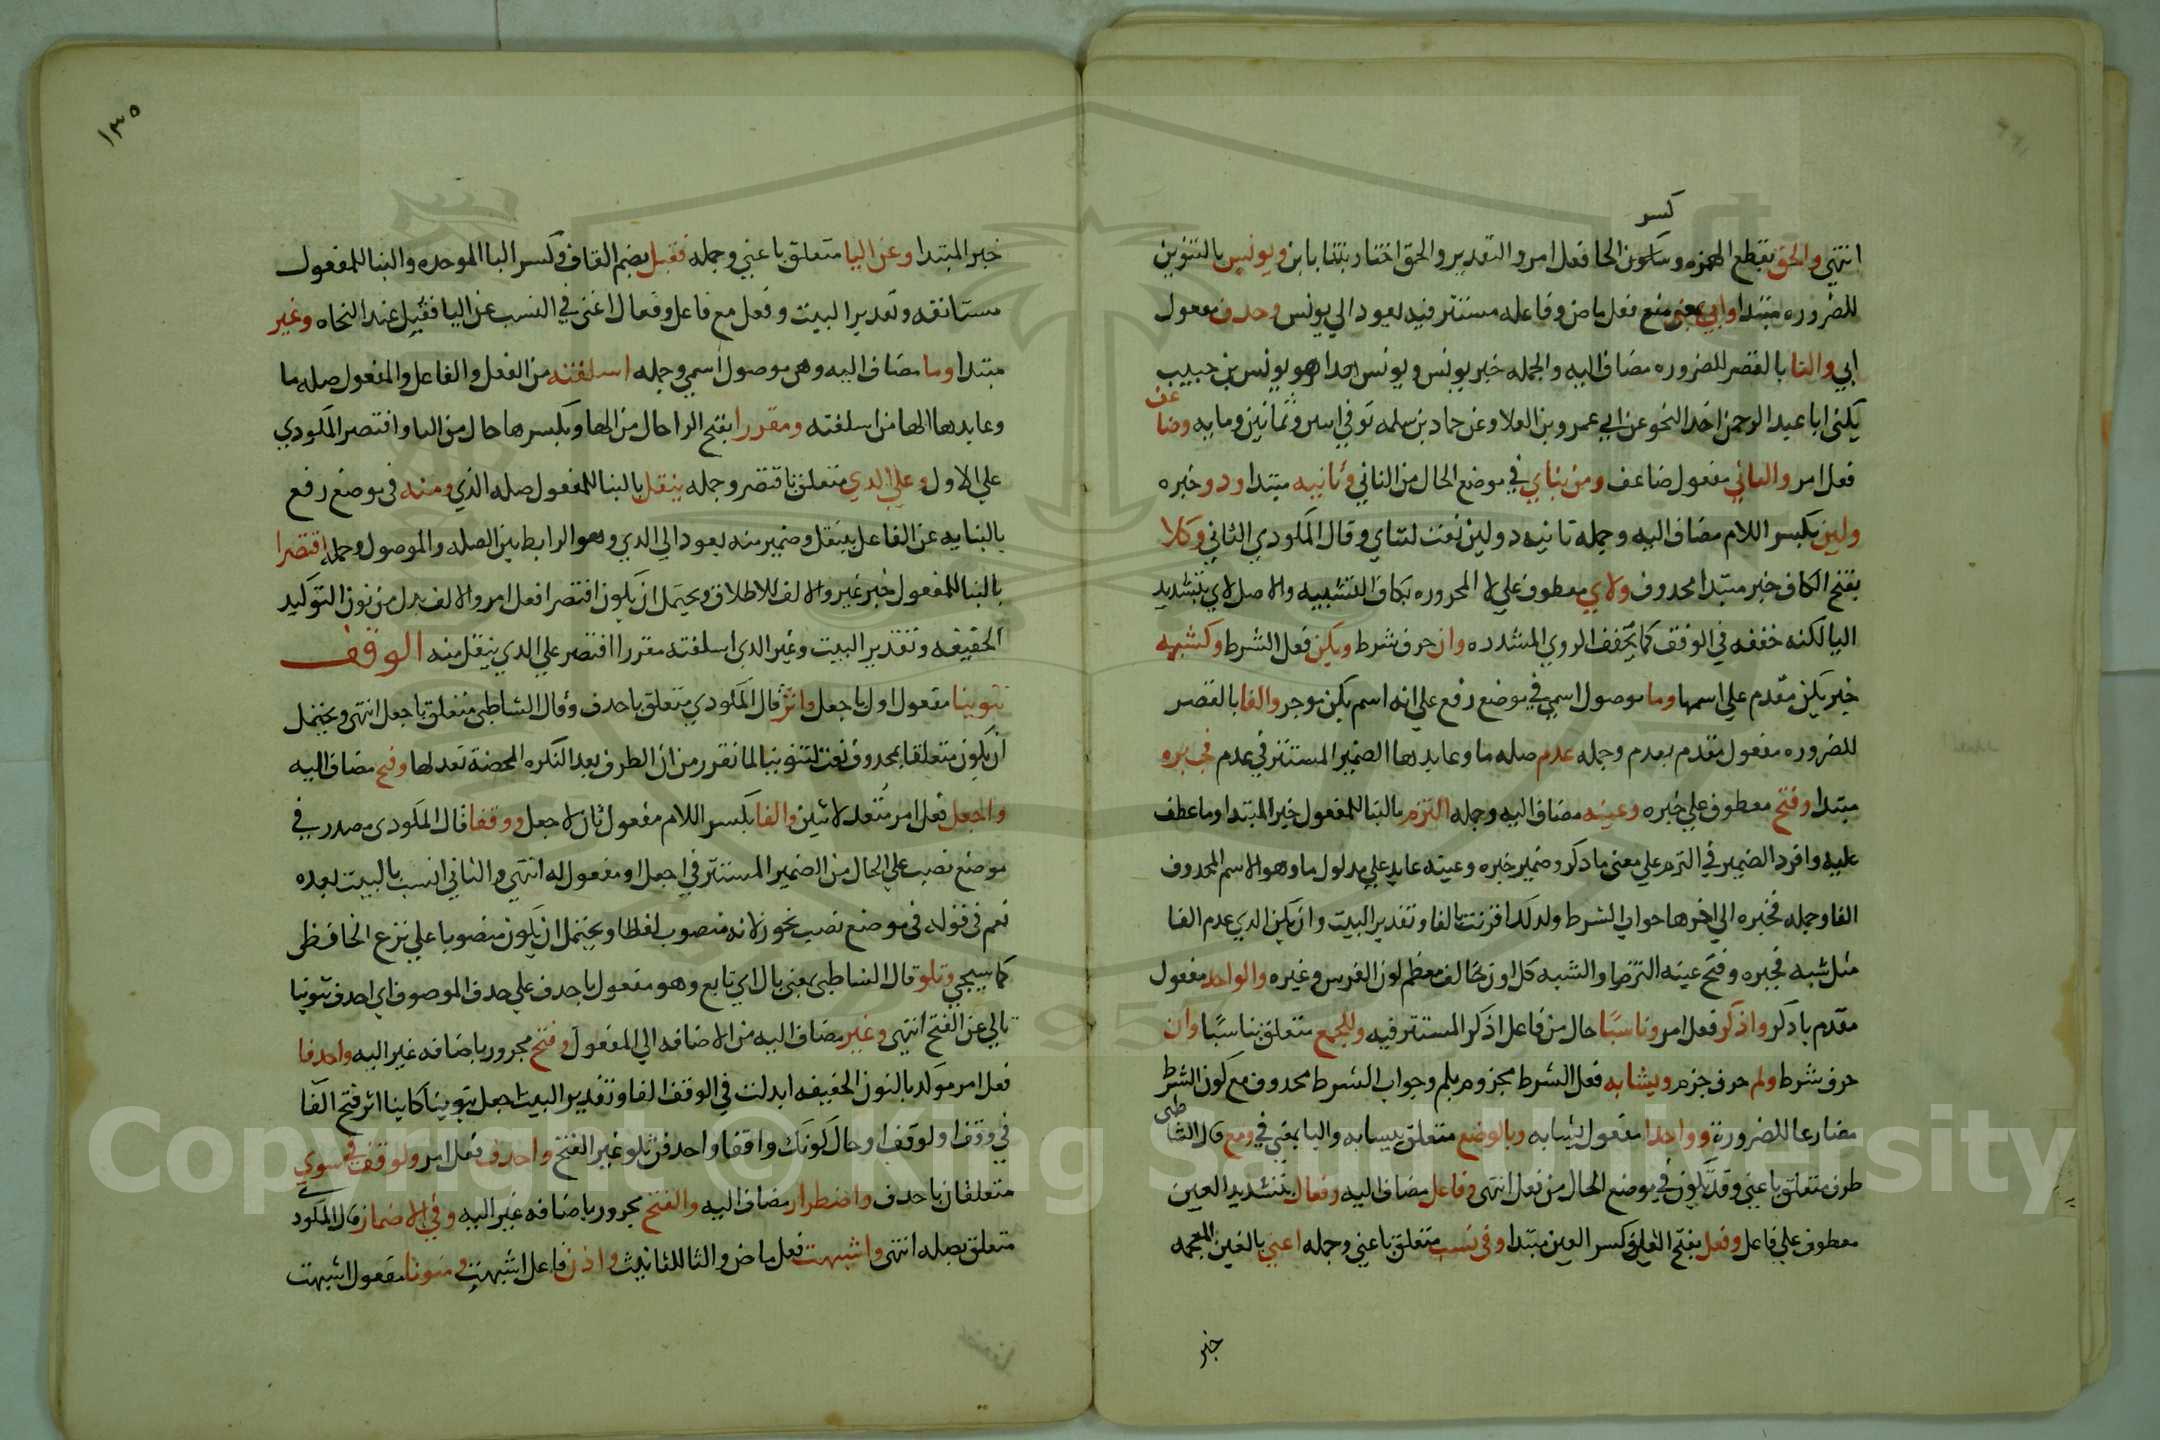 كسر
انتهى والحق بقطع الهمزه وسكون الحا فعل امر والتقدير والحق اختار بنتا بابن ويونس بالتنوين
للضروره مبتدا وابى بمعنى منع فعل ماض وفاعله مستتر فيه يعود الي يونس وحذف مفعول
ابي والتا بالقصر للضروره مضاف اليه والجمله خبر يونس ويونس هو يونس بن حبيب
يكنى ابا عبد الرحمن اخذ النحو عن ابي عمرو بن العلا وعن حماد بن سلمه توفي وثمانين ومايه وضاعف
فعل امر والثاني مفعول ضاعف ومن ثنايي في موضع الحال من الثاني وثانيه مبتدا وذو خبره
ولين بكسر اللام مضاف اليه وجمله ثانيه ذو لين نعت لثناي وقال المكودي الثاني وكلا
بفتح الكاف خبر مبتدا محذوف ولاي معطوف علي لا المجروره بكاف التشبيه والاصل لاي بتشديد
اليا لكنه خففه في الوقف كما يخفف الروي المشدده وان حرف شرط ويكن فعل الشرط وكشيه
خبر يكن مقدم علي اسمها وما موصول اسمي في موضع رفع علي انه اسم يكن موخر والفا بالقصر
للضروره مفعول مقدم بعدم وجمله عدم صله ما وعايدها الضمير المستتر في عدم فجبره
مبتدا وفتح معطوف علي خبره وعينه مضاف اليه وجمله التزم بالبنا للمفعول خبر المبتدا وما عطف
عليه وافرد الضمير في التزم علي معنى ما ذكر وضمير خبره وعينه عايد علي مدلول ما وهو الاسم المحذوف
الفا وجمله فجبره الي اخرها جواب الشرط ولذلك اقرنت بالفا وتقدير البيت وان يكن الذي عدم الفا
مثل شيه فجبره وفتح عينه التزما والشيه كل لون يخالف معظم لون الفرس وغيره والواحد مفعول
مقدم باذكر واذكر فعل امر وناسبا حال من فاعل اذكر المستتر فيه وللجمع متعلق بناسبا وان
حرف شرط ولم حرف جزم ويشابه فعل الشرط مجزوم بلم وجواب الشرط محذوف مع كون الشرط
مضارعا للضرورة وواحدا مفعول يشابه وبالوضع متعلق بيشابه والبا بمعنى في ومع قال الشاطبى
ظرف متعلق باغنى وقد يكون في موضع الحال من فعل انتهى وفاعل مضاف اليه وفعال بتشديد العين
معطوف علي فاعل وفعل بفتح الفا وكسر العين مبتدا وفي نسب متعلق باغني وجمله اغني بالغين المعجمه
خبر
١٣٥
خبر المبتدا وعن اليا متعلق باغني وجمله فقبل بضم القاف وكسر البا الموحده والبنا للمفعول
مستانفه وتقدير البيت وفعل مع فاعل وفعال اغنى في النسب عن اليا فقبل عند النحاه وغير
مبتدا وما مضاف اليه وهي موصول اسمي وجمله اسلفته من الفعل والفاعل والمفعول صله ما
وعايدها الها من اسلفته ومقررا بفتح الرا حال من الها وبكسرها حال من التا واقتصر المكودي
علي الاول وعلي الذي متعلق باقتصر وجمله ينقل بالبنا للمفعول صله الذي ومنه في موضع رفع
بالنيابه عن الفاعل بينقل وضمير منه يعود الي الذي وهو الرابط بين الصله والموصول وجمله اقتصرا
بالبنا للمفعول خبر غير والالف للاطلاق ويحتمل ان يكون اقتصرا فعل امر والالف بدل من نون التوكيد
الخفيفه وتقدير البيت وغير الذي اسلفته مقررا اقتصر علي الذي ينقل منه الوقف
تنوينا مفعول اول باجعل واثر قال المكودي متعلق باحذف وقال الشاطبى متعلق باجعل انتهى ويحتمل
ان يكون متعلقا بمحذوف نعت لتنوينا لما تقرر من ان الظرف بعد النكره المحضة نعد لها وفتح مضاف اليه
واجعل فعل امر متعد لاثنين والفا بكسر اللام مفعول ثان لاجعل ووقفا قال المكودى مصدر في
موضع نصب علي الحال من الضمير المستتر في اجعل او مفعول له انتهى والثاني انسب بالبيت بعده
نعم في قوله في موضع نصب تجوز لانه منصوب لفظا ويحتمل ان يكون منصوبا علي نزع الخافض
كما سيجي وتلو قال الشاطبى بمعنى تال اي تابع وهو مفعول باحذف علي حذف الموصوف اي احذف تنوينا
تالي عن الفتح انتهى وغير مضاف اليه من الاضافه الي المفعول وفتح مجرور باضافه غير اليه واحذفا
فعل امر موكد بالنون الخفيفه ابدلت في الوقف الفا وتقدير البيت اجعل تنوينا كاينا اثر فتح الفا
في وقف او لوقف او حال كونك واقفا واحذفن تلو غير الفتح واحذف فعل امر ولوقف في سوي
متعلقان باحذف واضطرار مضاف اليه والفتح مجرور باضافه غير اليه وفي الاضمار قال المكودي
متعلق بصله انتهى واشبهت فعل ماض والتا للتانيث واذن فاعل اشبهت ومنونا مفعول اشبهت